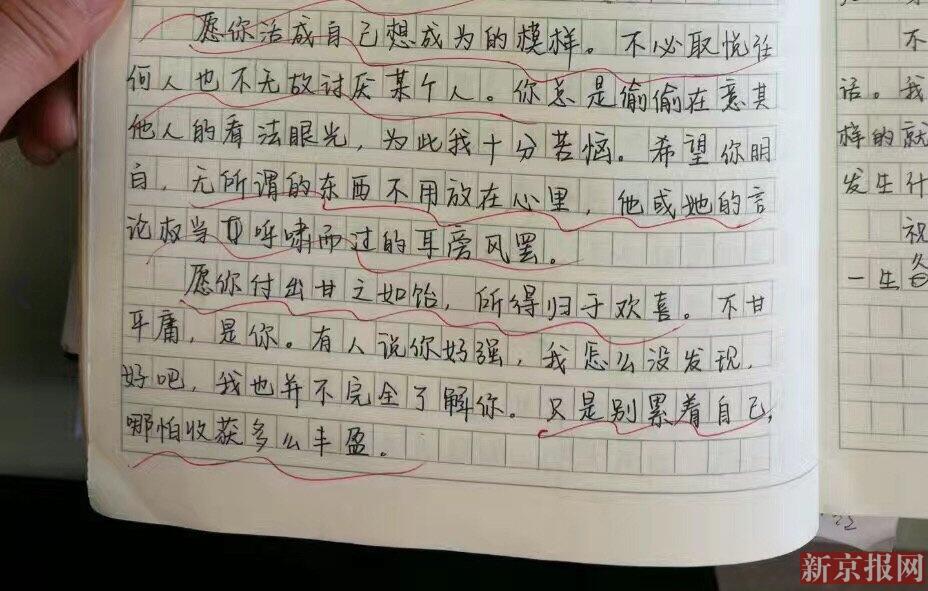 愿你活成自己想成为的模样。不必取悦任
何人也不无故讨厌某个人。你总是偷偷在意其
他人的看法眼光，为此我十分苦恼。希望你明
白，无所谓的东西不用放在心里，他或她的言
论权当呼啸而过的耳旁风罢。
愿你付出甘之如饴，所得归于欢喜。不甘
平庸，是你。有人说你好强，我怎么没发现，
好吧，我也并不完全了解你。只是别累着自己，
哪怕收获多么丰盈。
不
话。我
样的就
发生什
祝
一生备
新京报网